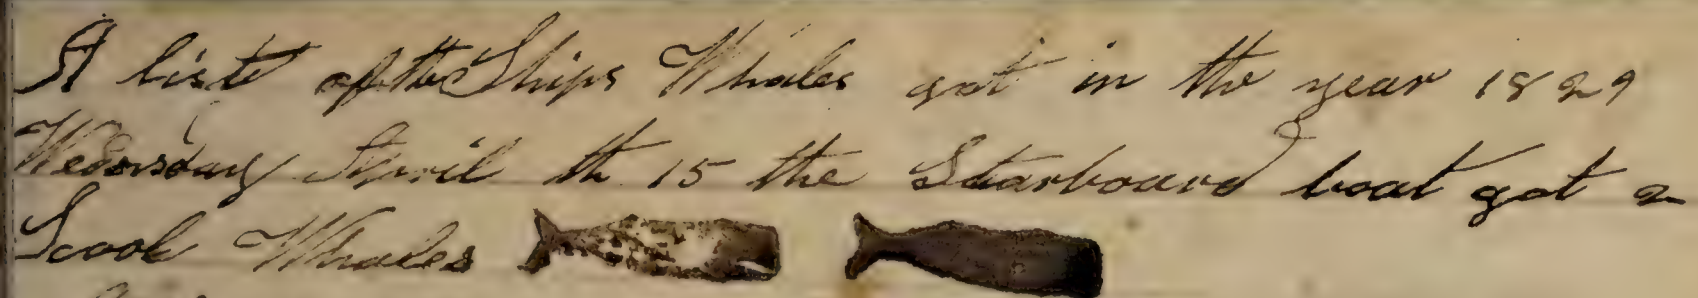 A list of the Ships Whales got in the year 1829
Wedensday April th 15 the Starboard boat got 2
Scool Whales